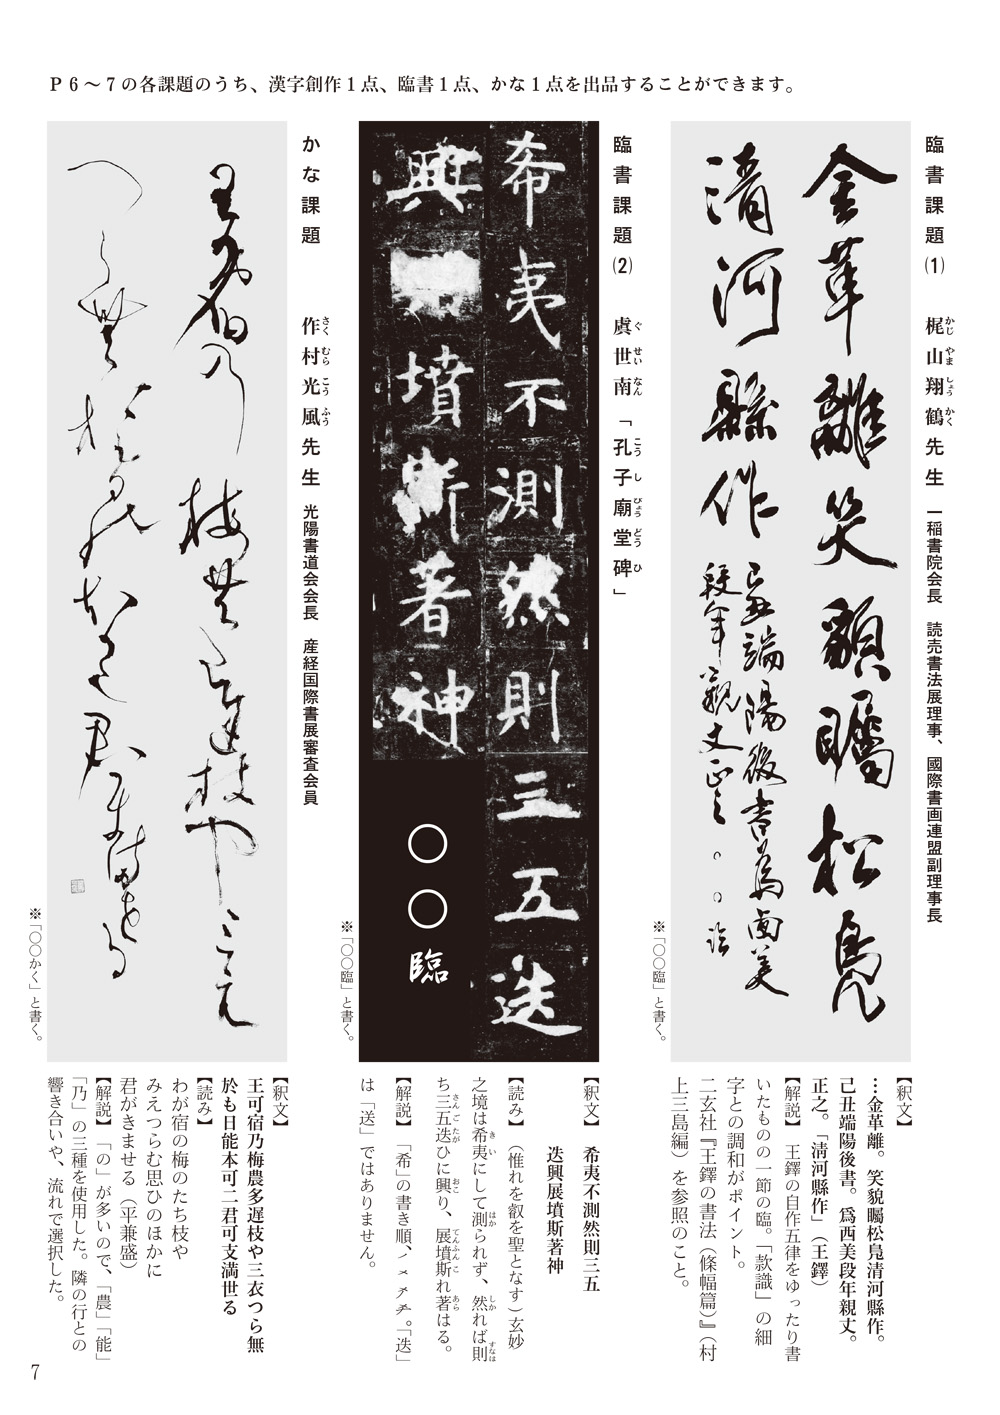 Ｐ６～７の各課題のうち、漢字創作１点、臨書１点、かな１点を出品することができます。
臨書課題(1)　梶山翔鶴先生　一稲書院会長　読売書法展理事、國際書画連盟副理事長
かじやましょうかく
金革離笑貌矚松鳬
清河縣作
己丑端陽後書為西美
段年親丈正之 ○○臨
※「〇〇臨」と書く。
【釈文】
…金革離。笑貌矚松鳬清河縣作。
己丑端陽後書。爲西美段年親丈。
正之。「清河縣作」（王鐸）
【解説】　王鐸の自作五律をゆったり書
いたものの一節の臨。「款識」の細
字との調和がポイント。
二玄社『王鐸の書法（條幅篇）』（村
上三島編）を参照のこと。
臨書課題(2)　虞世南「孔子廟堂碑」
ぐせいなん　こうしびょうどうひ
希夷不測然則三五迭
興　墳斯著神〇〇臨
※「〇〇臨」と書く。
【釈文】　希夷不測然則三五
迭興展墳斯著神
【読み】（惟れを叡を聖となす）玄妙
之境は希夷にして測られず、然れば則
き　い　はか　しか　すなは
ち三五迭ひに興り、展墳斯れ著はる。
さんごたが　おこ　てんふんこ　あら
【解説】　「希」の書き順、ノメチ㐅。「迭」
は「送」ではありません。
かな課題　作村光風先生　光陽書道会会長　産経国際書展審査会員
さくむらこうふう
王可宿乃梅農多遅枝や三衣
つら無於も日能本可二君可支満世る
※「〇〇かく」と書く。
【釈文】
王可宿乃梅農多遅枝や三衣つら無
於も日能本可二君可支満世る
【読み】
わが宿の梅のたち枝や
みえつらむ思ひのほかに
君がきませる（平兼盛）
【解説】「の」が多いので、「農」「能」
「乃」の三種を使用した。隣の行との
響き合いや、流れで選択した。
7